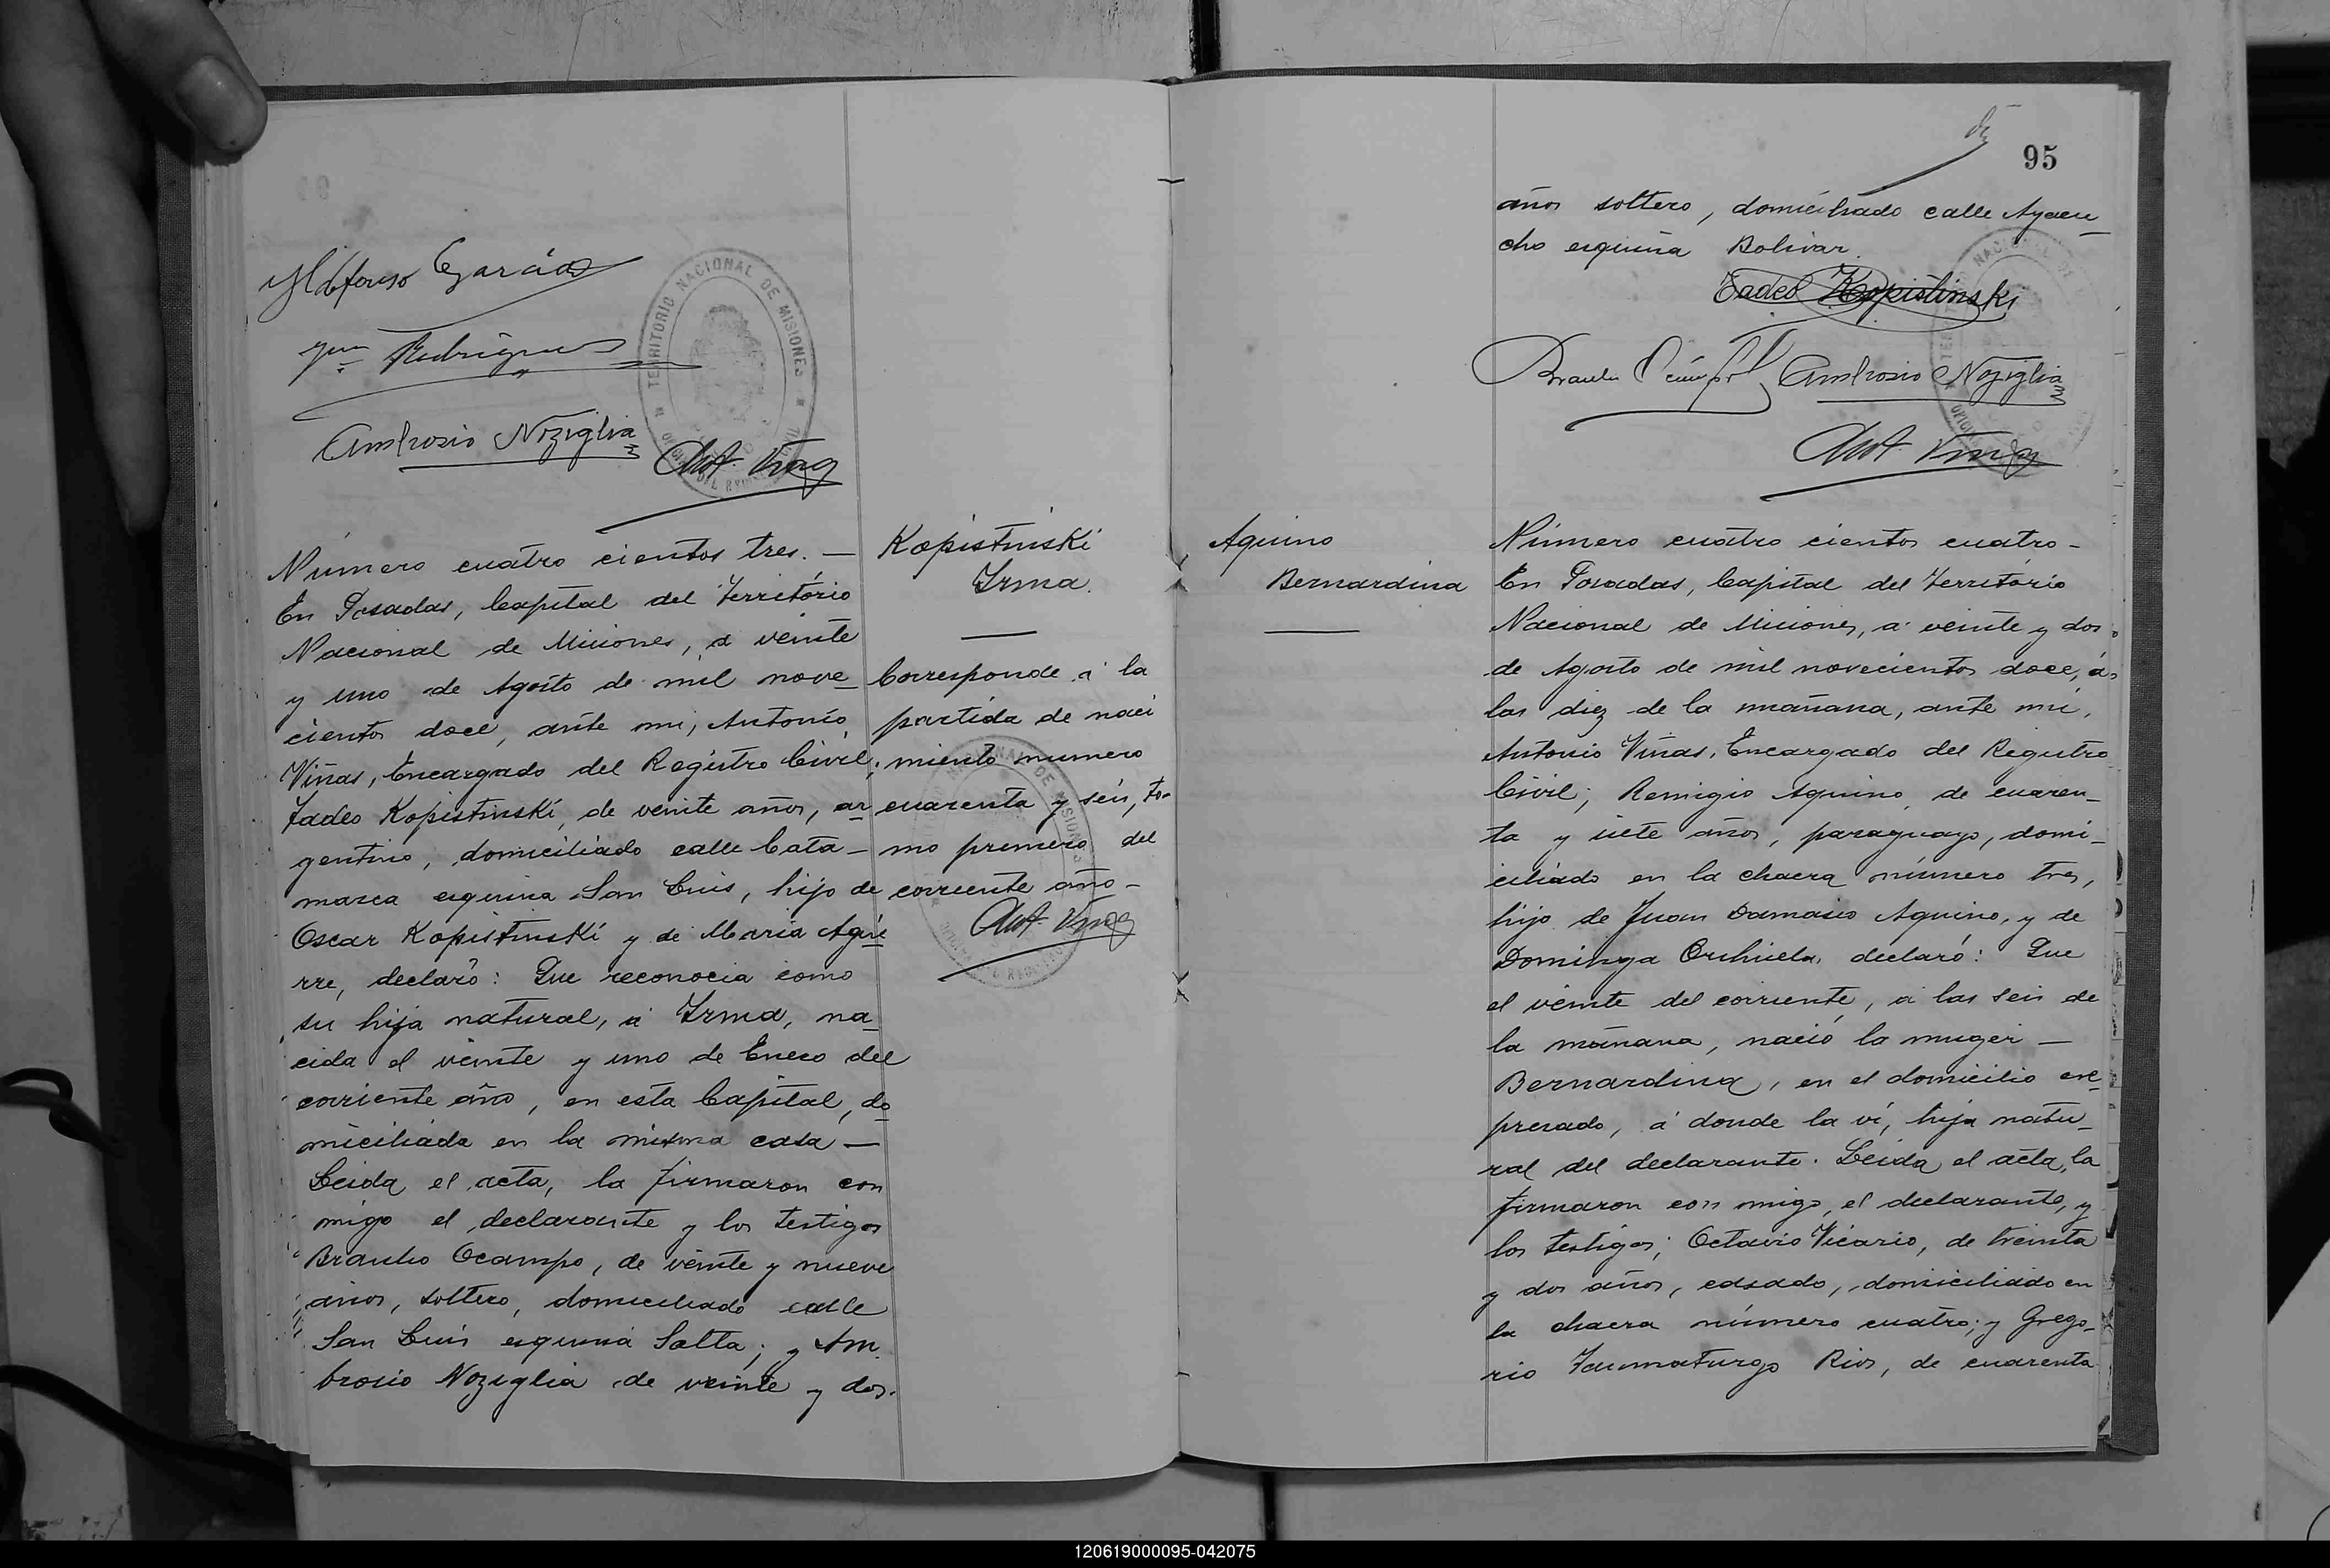 Yldefonso Garcia
Rodrigues
Ambrosio Noziglia
Ant. Viñas
TERRITORIO NACIONAL DE MISIONES
Número cuatro cientos tres. —
En Posadas, Capital del Território
Nacional de Misiones, a veinte
y uno de Agosto de mil nove-
cientos doce, ante mi, Antonio
Viñas, Encargado del Registro Civil;
Tadeo Kopistinski, de veinte años, ar-
gentino, domiciliado calle Cata-
marca esquina San Luis, hijo de
Oscar Kopistinski y de Maria Agui-
rre, declaró: Que reconocia como
su hija natural, á Irma, na-
cida el veinte y uno de Enero del
corriente año, en esta Capital, do-
miciliada en la misma casa —
Leida el acta, la firmaron con
migo el declarante y los testigos
Braulio Ocampo, de veinte y nueve
años, soltero, domiciliado calle
San Luis esquina Salta; y Am-
brosio Noziglia de veinte y dos.
Kopistinski
Irma.
Corresponde á la
partida de naci
miento numero
cuarenta y seis, to-
mo primero del
corriente año-
Ant. Viñas
95
años soltero, domiciliado calle Ayacu-
cho esquina Bolivar.
Tadeo Kopistinski
Braulio Ocampo Ambrosio Noziglia
Ant. Viñas
Aquino
Bernardina
Número cuatro cientos cuatro-
En Posadas, Capital del Território
Nacional de Misiones, a veinte y dos
de Agosto de mil novecientos doce, á
las diez de la mañana, ante mi,
Antonio Viñas, Encargado del Registro
Civil; Remigio Aquino, de cuaren-
ta y siete años, paraguayo, domi-
ciliado en la chacra número tres,
hijo de Juan Damasio Aquino, y de
Dominga Orihuela, declaró: Que
el veinte del corriente, a las seis de
la mañana, nació la muger —
Bernardina, en el domicilio ex-
presado, á donde la ví, hija natu-
ral del declarante. Leida el acta, la
firmaron con migo, el declarante, y
los testigos; Octavio Vicario, de treinta
y dos años, casado, domiciliado en
la chacra número cuatro; y Grego-
rio Taumaturgo Rios, de cuarenta
120619000095-042075